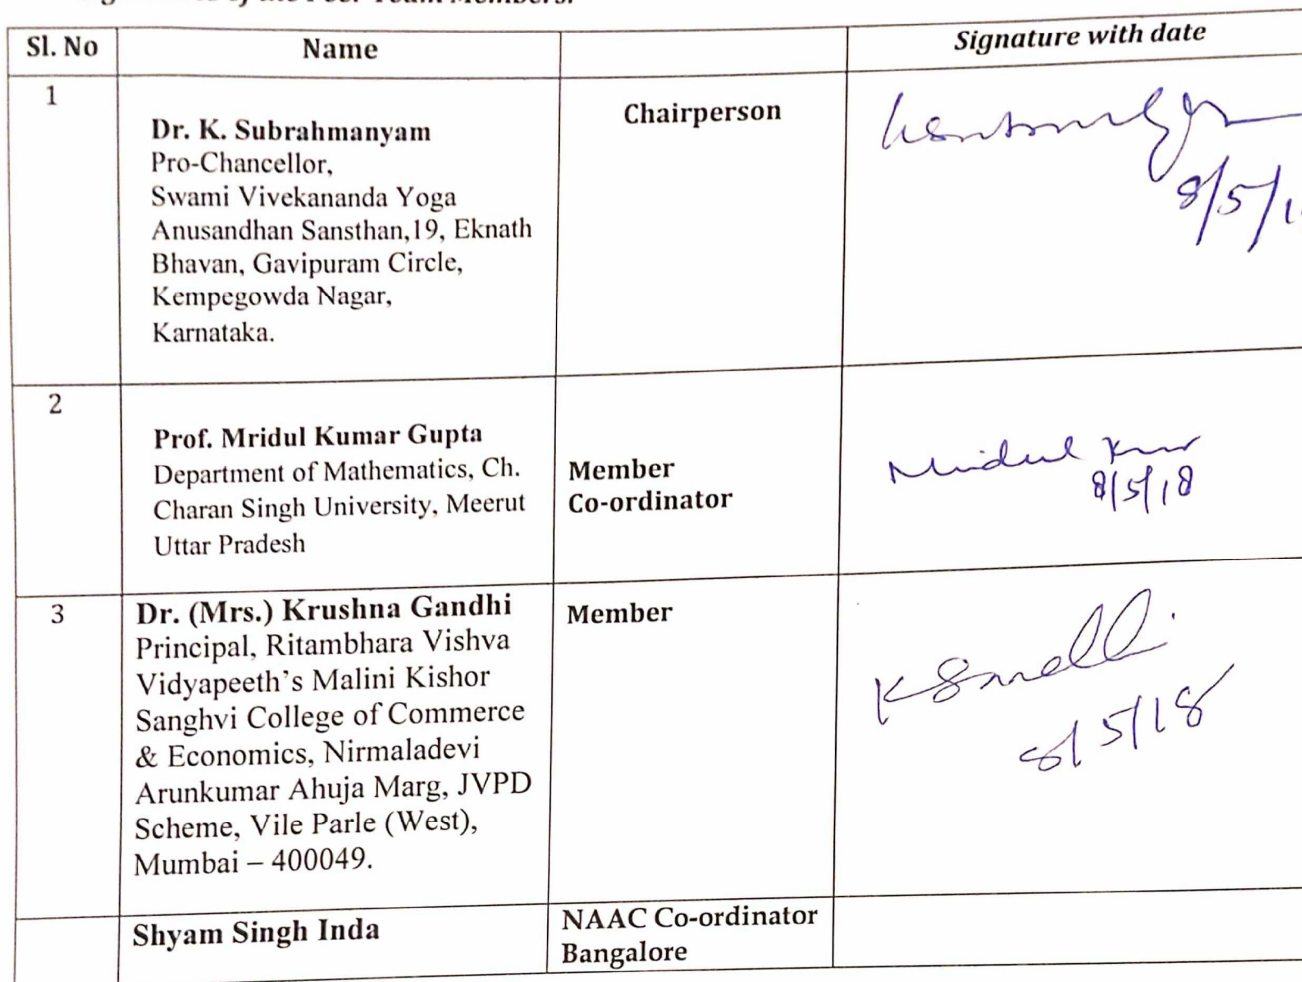 of the Peer Team Members:
Sl. No Name Signature with date
1
Dr. K. Subrahmanyam
Pro-Chancellor,
Swami Vivekananda Yoga
Anusandhan Sansthan,19, Eknath
Bhavan, Gavipuram Circle,
Kempegowda Nagar,
Karnataka.
Chairperson
8/5/1
2
Prof. Mridul Kumar Gupta
Department of Mathematics, Ch.
Charan Singh University, Meerut
Uttar Pradesh
Member
Co-ordinator
Mridul
8/5/18
3
Dr. (Mrs.) Krushna Gandhi
Principal, Ritambhara Vishva
Vidyapeeth’s Malini Kishor
Sanghvi College of Commerce
& Economics, Nirmaladevi
Arunkumar Ahuja Marg, JVPD
Scheme, Vile Parle (West),
Mumbai – 400049.
Member
8/5/18
Shyam Singh Inda
NAAC Co-ordinator
Bangalore